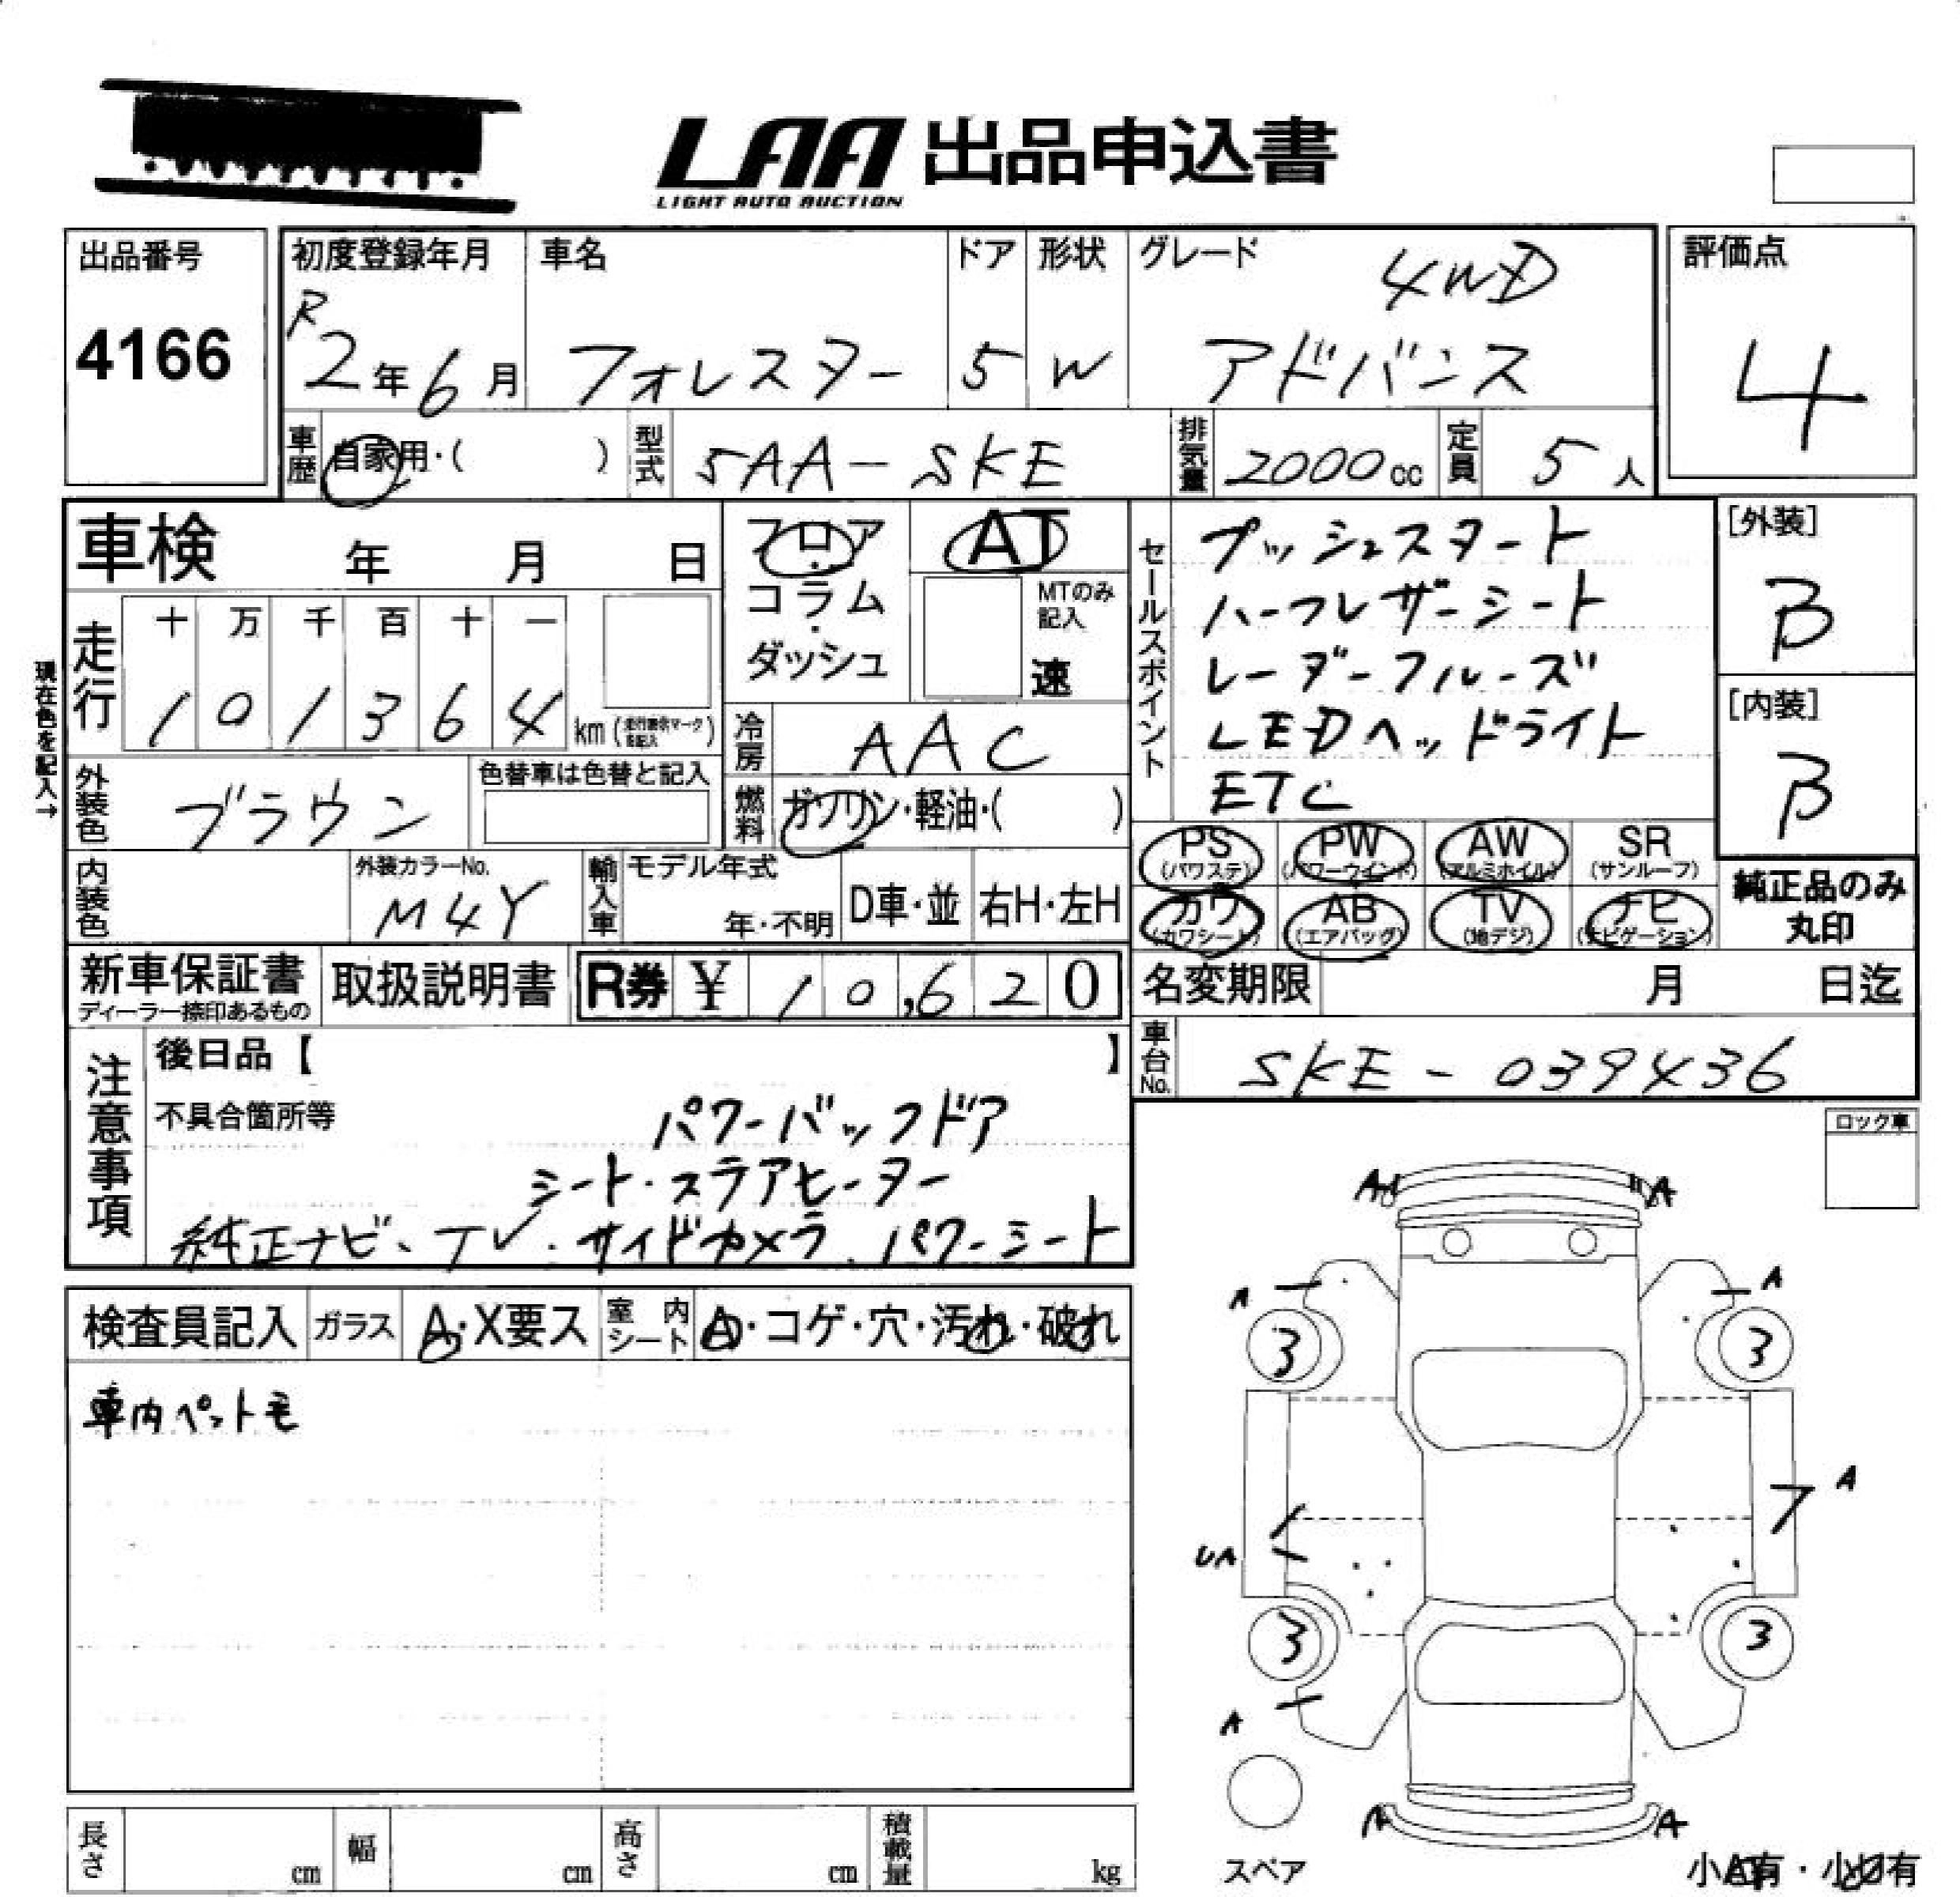 LAA 出品申込書
LIGHT AUTO AUCTION
出品番号
4166
初度登録年月
R2年6月
車名
フォレスター
ドア
5
形状
W
グレード
4WD
アドバンス
評価点
4
車歴
自家用・( )
型式
5AA-SKE
排気量
2000cc
定員
5人
車検 年 月 日
フロア
・
コラム
・
ダッシュ
AT
MTのみ記入
速
セールスポイント
プッシュスタート
ハーフレザーシート
レーダークルーズ
LEDヘッドライト
ETC
[外装]
B
[内装]
B
現在色を記入→
走行
十 万 千 百 十 一
1 0 1 3 6 4 km
冷房
AAC
外装色
ブラウン
色替車は色替と記入
燃料
ガソリン・軽油・( )
内装色
外装カラーNo.
M4Y
輸入車
モデル年式
年・不明
D車・並
右H・左H
PS
(パワステ)
PW
(パワーウインド)
AW
(アルミホイル)
SR
(サンルーフ)
カワ
(カワシート)
AB
(エアバッグ)
TV
(地デジ)
ナビ
(ナビゲーション)
純正品のみ
丸印
新車保証書
ディーラー捺印あるもの
取扱説明書
R券 ¥ 10,620
名変期限 月 日迄
車台No.
SKE-039436
注意事項
後日品【 】
不具合箇所等
パワーバックドア
シート・ステアヒーター
純正ナビ、TV・サイドカメラ、パワーシート
ロック車
検査員記入
ガラス
A・X要ス
室内シート
A・コゲ・穴・汚れ・破れ
車内ペット毛
A A
A A
3 3
A
UA
3 3
A
A A
スペア
長さ cm
幅 cm
高さ cm
積載量 kg
小A有・小U有